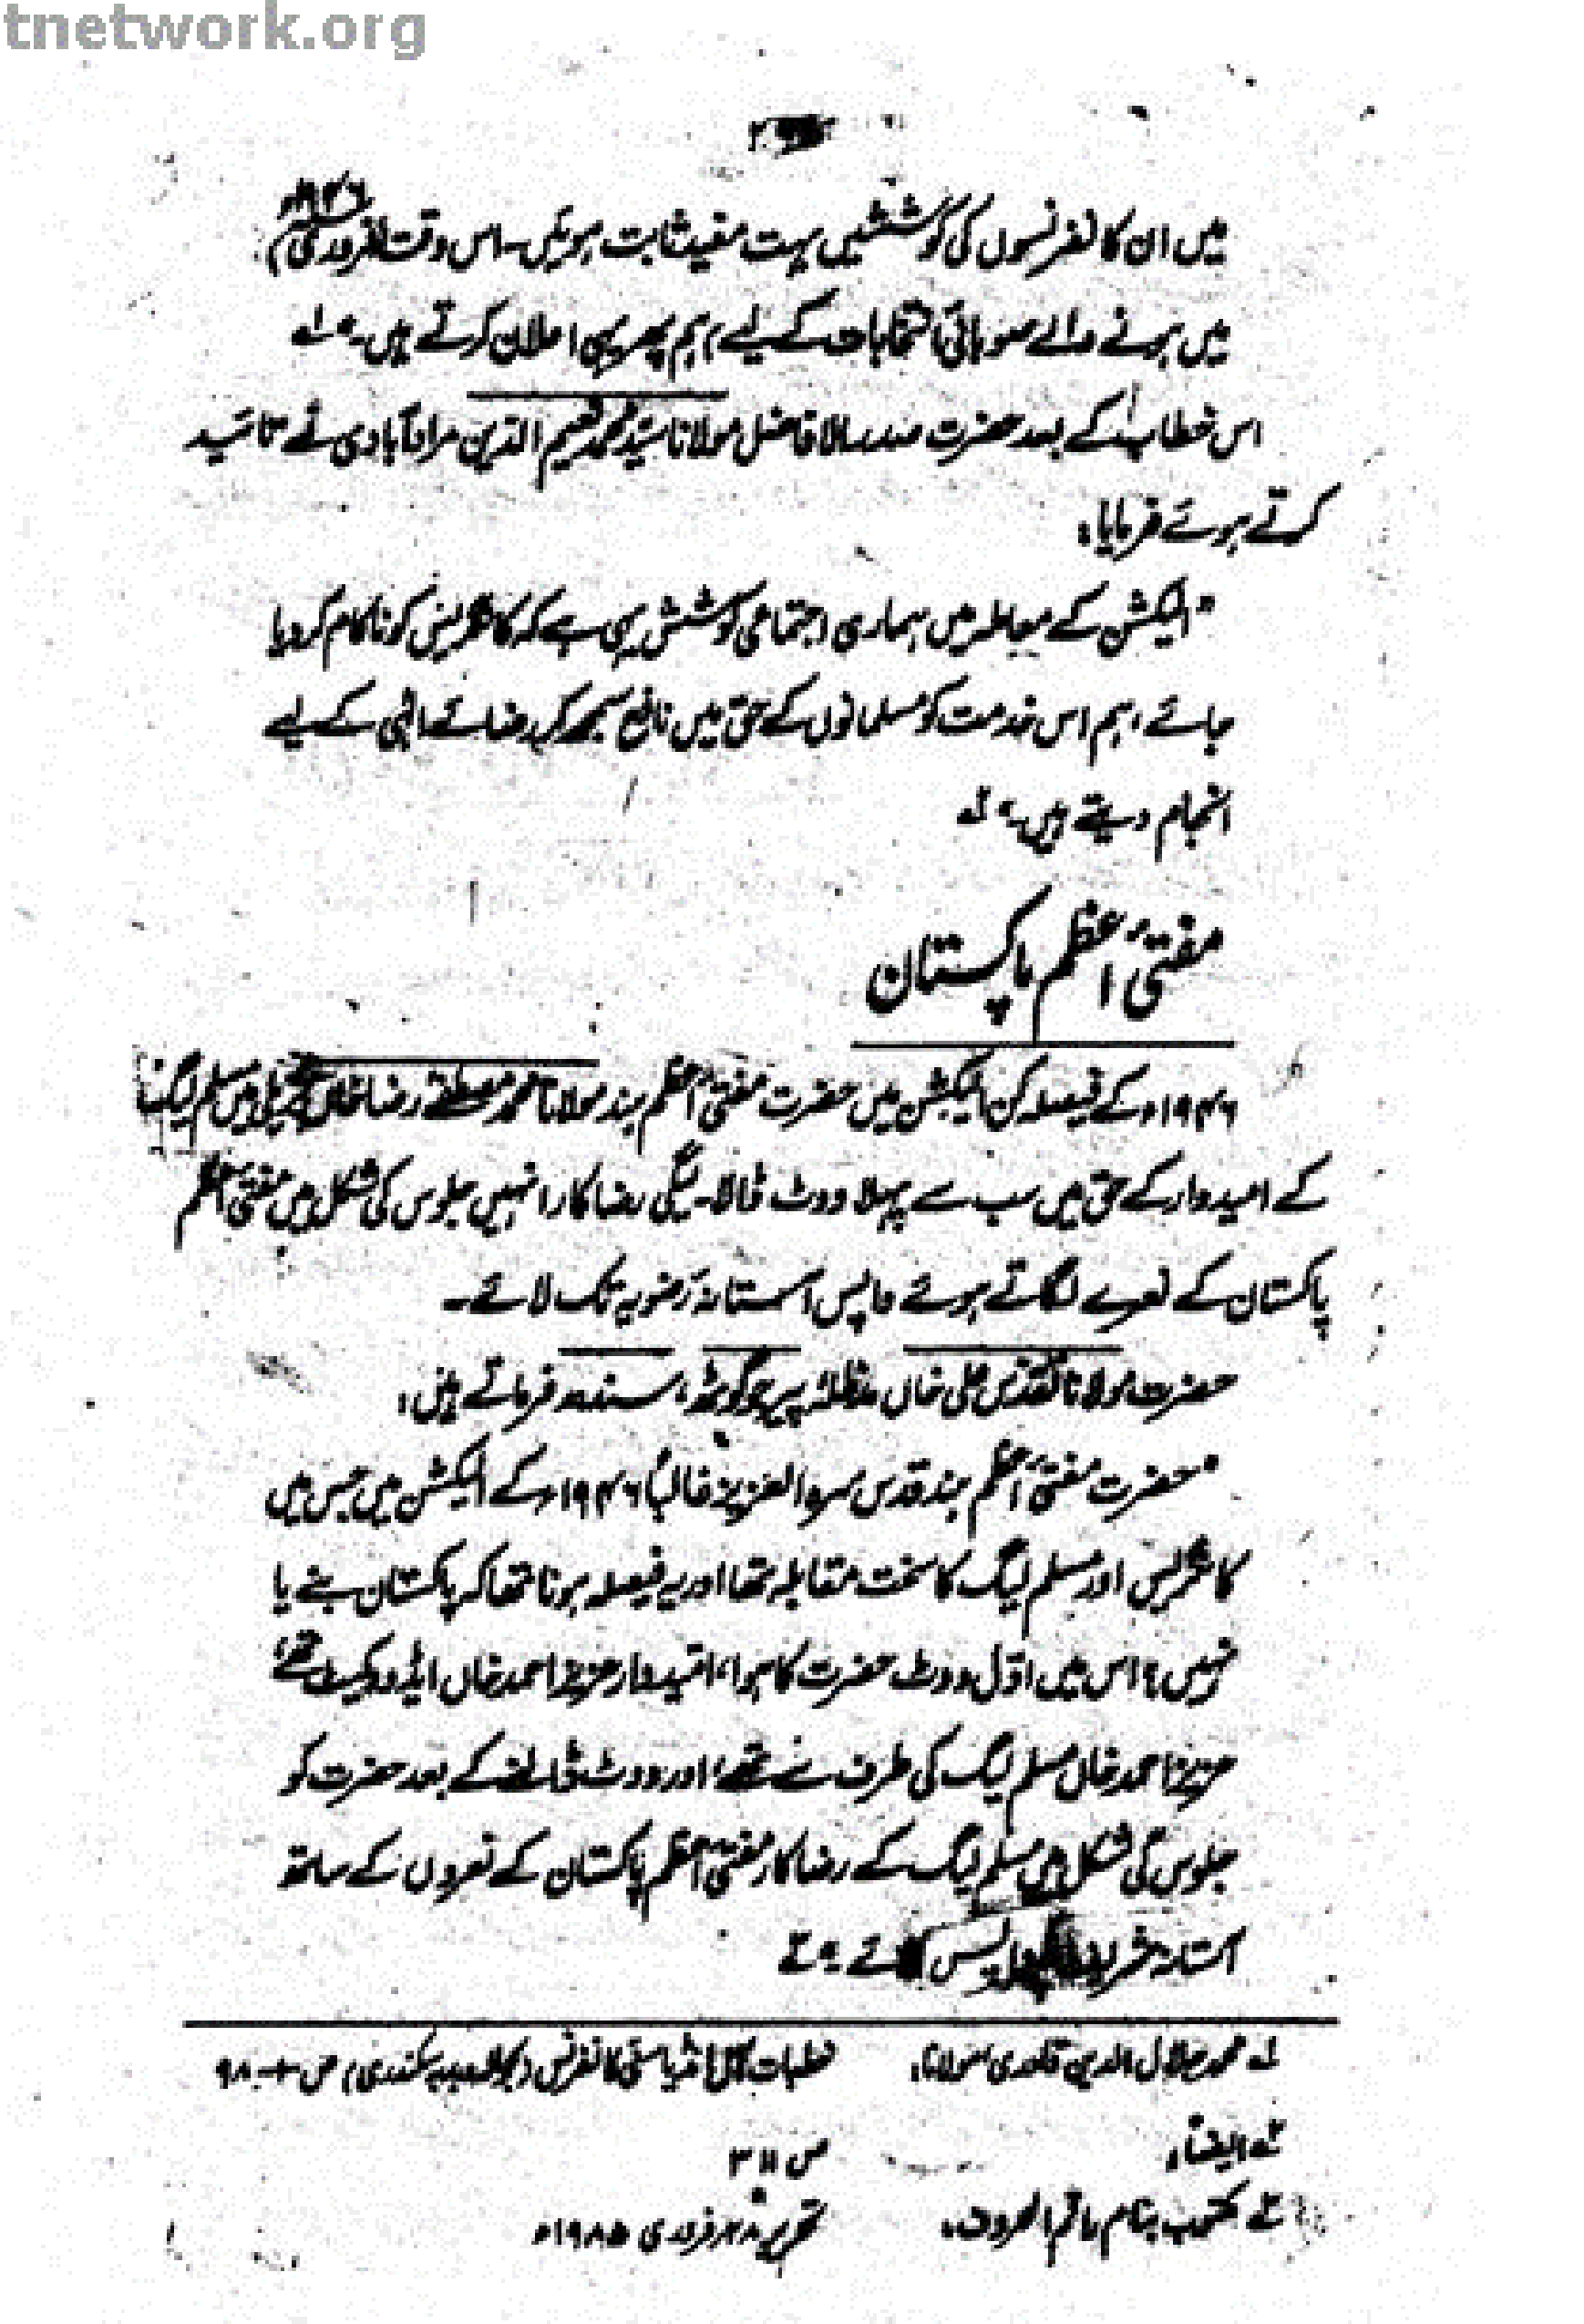 tnetwork.org
میں ان کانفرنسوں کی کوششیں بہت مفید ثابت ہوئیں۔ اس وقت (فروری ۱۹۴۶ء
میں ہونے والے صوبائی انتخابات کے لیے) ہم پھر یہی اعلان کرتے ہیں۔" لہ
اس خطاب کے بعد حضرت صدر الافاضل مولانا سید محمد نعیم الدین مرادآبادی نے تائید
کرتے ہوئے فرمایا:
"الیکشن کے معاملہ میں ہماری اجتماعی کوشش یہی ہے کہ کانگریس کو ناکام کر دیا
جائے، ہم اس خدمت کو مسلمانوں کے حق میں نافع سمجھ کر رضائے الٰہی کے لیے
انجام دیتے ہیں۔" ٢ه
مفتیٔ اعظم پاکستان
۱۹۴۶ء کے فیصلہ کن الیکشن میں حضرت مفتیٔ اعظم ہند مولانا محمد مصطفےٰ رضا خاں بریلی میں مسلم لیگ
کے امیدوار کے حق میں سب سے پہلا ووٹ ڈالا۔ لیگی رضاکار انہیں جلوس کی شکل میں مفتیٔ اعظم
پاکستان کے نعرے لگاتے ہوئے واپس آستانۂ رضویہ تک لائے۔
حضرت مولانا تقدس علی خاں مدظلہٗ پیر جوگوٹھ، سندھ فرماتے ہیں:
"حضرت مفتیٔ اعظم ہند قدس سرہ العزیز غالباً ۱۹۴۶ء کے الیکشن میں جس میں
کانگریس اور مسلم لیگ کا سخت مقابلہ تھا اور یہ فیصلہ ہونا تھا کہ پاکستان بنے یا
نہیں؟ اس میں اوّل ووٹ حضرت کا ہوا، امیدوار عزیز احمد خاں ایڈووکیٹ تھے
عزیز احمد خاں مسلم لیگ کی طرف سے تھے، اور ووٹ ڈالنے کے بعد حضرت کو
جلوس کی شکل میں مسلم لیگ کے رضاکار مفتیٔ اعظم پاکستان کے نعروں کے ساتھ
آستانہ شریفہ واپس لائے۔" ٣ه
لہ محمد جلال الدین قادری، مولانا، خطبات آل انڈیا سنی کانفرنس (بحوالہ دبدبہ سکندری) ص
٢ه ایضاً، ص ۳۱۱
٣ه مکتوب بنام راقم الحروف، تحریر ۲۸ فروری ۱۹۸۵ء